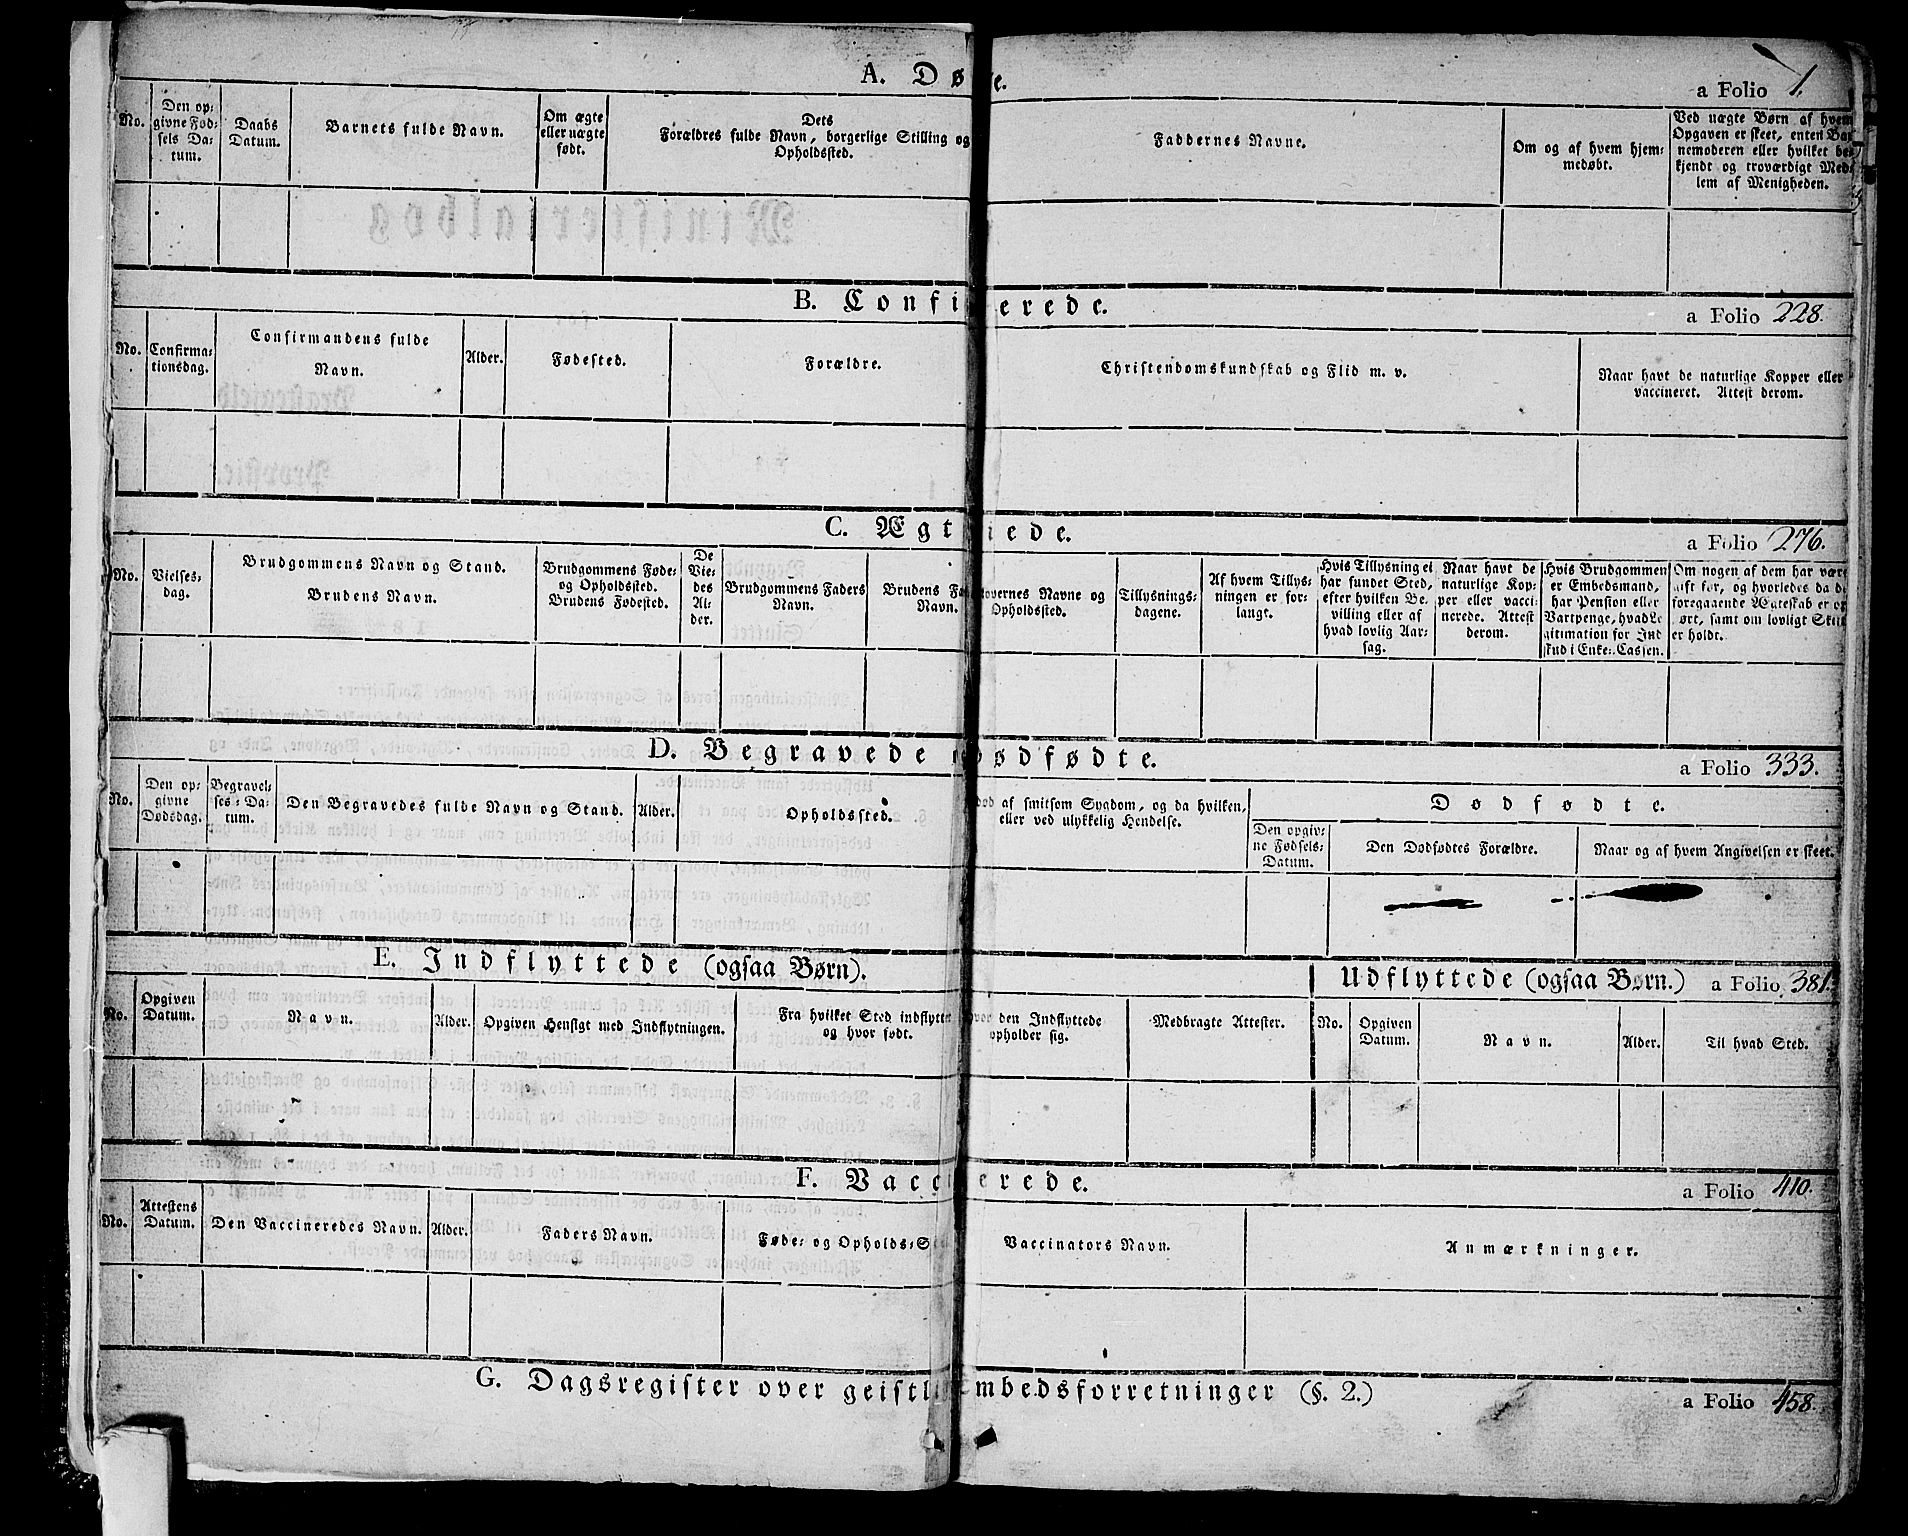 A. Dø e.
a Folio 1.
No.
Den op-
givne Fød-
sels Da-
tum.
Daabs
Datum.
Barnets fulde Navn.
Om ægte
eller uægte
født.
Dets
Forældres fulde Navn, borgerlige Stilling og
Opholdssted.
Faddernes Navne.
Om og af hvem hjem-
medøbt.
Ved uægte Børn af hvem
Opgaven er skeet, enten Bar
nemoderen eller hvilket be-
kjendt og troværdigt Med-
lem af Menigheden.
B. Confi erede.
a Folio 228.
No.
Confirma-
tionsdag.
Confirmandens fulde
Navn.
Alder.
Fødested.
Forældre.
Christendomskundskab og Flid m. v.
Naar havt de naturlige Kopper eller
vaccineret. Attest derom.
C. Ægt iede.
a Folio 276.
No.
Vielses-
dag.
Brudgommens Navn og Stand.
Brudens Navn.
Brudgommens Føde-
og Opholdssted.
Brudens Fødested.
De
Vie-
des
Al-
der.
Brudgommens Faders
Navn.
Brudens Fa
Navn.
overnes Navne og
Opholdssted.
Tillysnings-
dagene.
Af hvem Tillys-
ningen er for-
langt.
Hvis Tillysning ei
har fundet Sted,
efter hvilken Be-
villing eller af
hvad lovlig Aar-
sag.
Naar havt de
naturlige Kop-
per eller vacci-
nerede. Attest
derom.
Hvis Brudgommen
er Embedsmand,
har Pension eller
Vartpenge, hvad Le
gitimation for Ind
skud i Enke-Cassen.
Om nogen af dem har være
gift før, og hvorledes da de
foregaaende Ægteskab er op
ørt, samt om lovligt Skif
er holdt.
D. Begravede ødfødte.
a Folio 333.
No.
Den op-
givne
Dødsdag.
Begravel-
ses-Da-
tum.
Den Begravedes fulde Navn og Stand.
Alder.
Opholdssted.
død af smitsom Sygdom, og da hvilken,
eller ved ulykkelig Hendelse.
Dødfødte.
Den opgiv-
ne Fødsels-
Datum.
Den Dødfødtes Forældre.
Naar og af hvem Angivelsen er skeet.
E. Indflyttede (ogsaa Børn).
Udflyttede (ogsaa Børn.)
a Folio 381.
No.
Opgiven
Datum.
Navn.
Alder.
Opgiven Hensigt med Indflytningen.
Fra hvilket Sted indflyttet
og hvor født.
vor den Indflyttede
opholder sig.
Medbragte Attester.
No.
Opgiven
Datum.
Navn.
Alder.
Til hvad Sted.
F. Vacc erede.
a Folio 410.
No.
Attestens
Datum.
Den Vaccineredes Navn.
Alder.
Faders Navn.
Føde- og Opholds-S
Vaccinators Navn.
Anmærkninger.
G. Dagsregister over geistl mbedsforretninger (§. 2.)
a Folio 458.